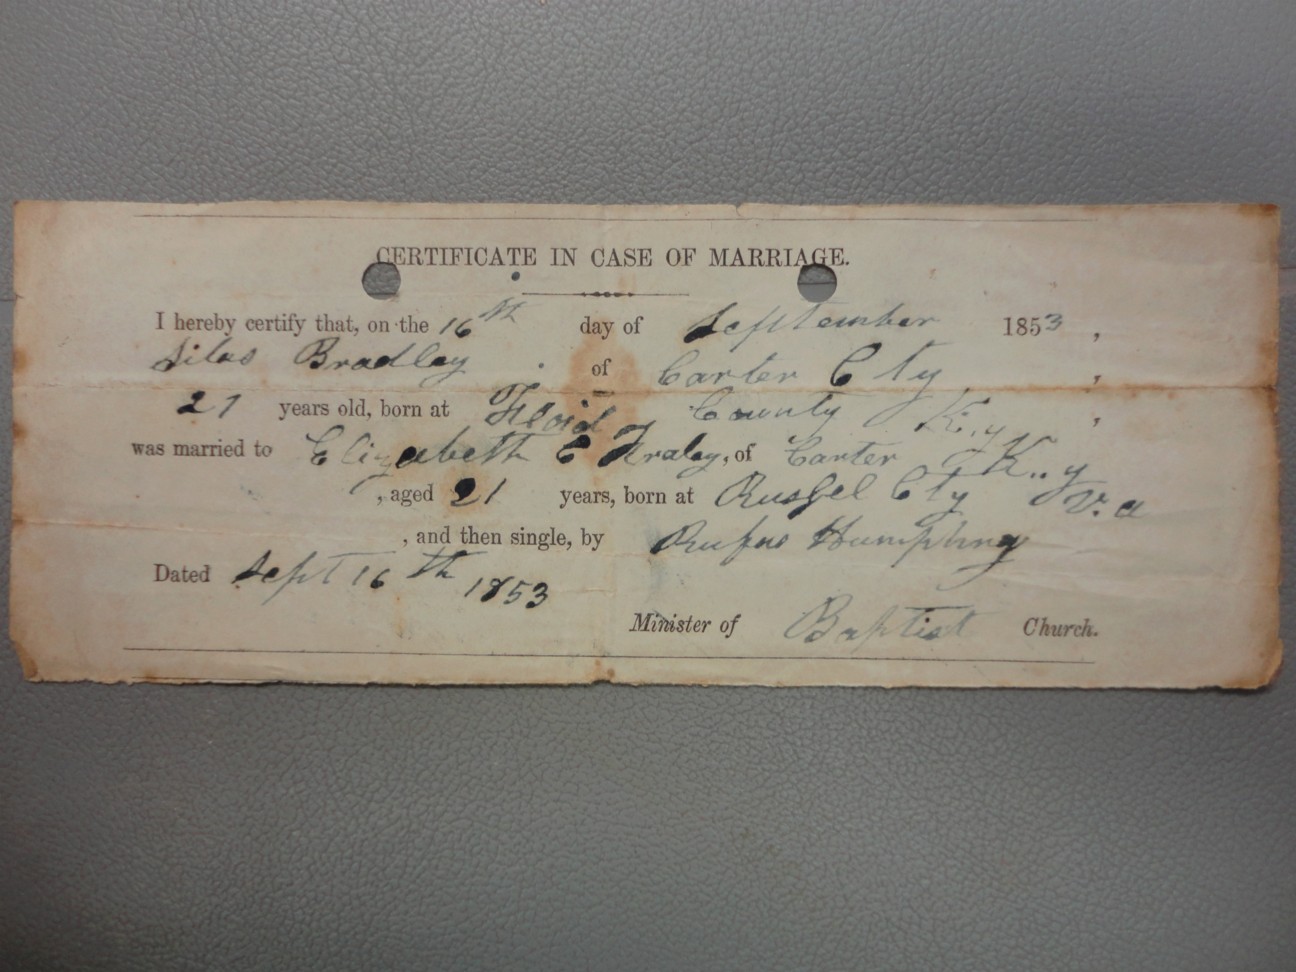 CERTIFICATE IN CASE OF MARRIAGE.
I hereby certify that, on the 16th day of September 1853,
Silas Bradley of Carter Cty,
21 years old, born at Floid County K.y,
was married to Elizabeth E Fraley, of Carter K..y
, aged 21 years, born at Russel Cty V.a
, and then single, by Rufus Humphrey
Dated Sept 16th 1853
Minister of Baptist Church.